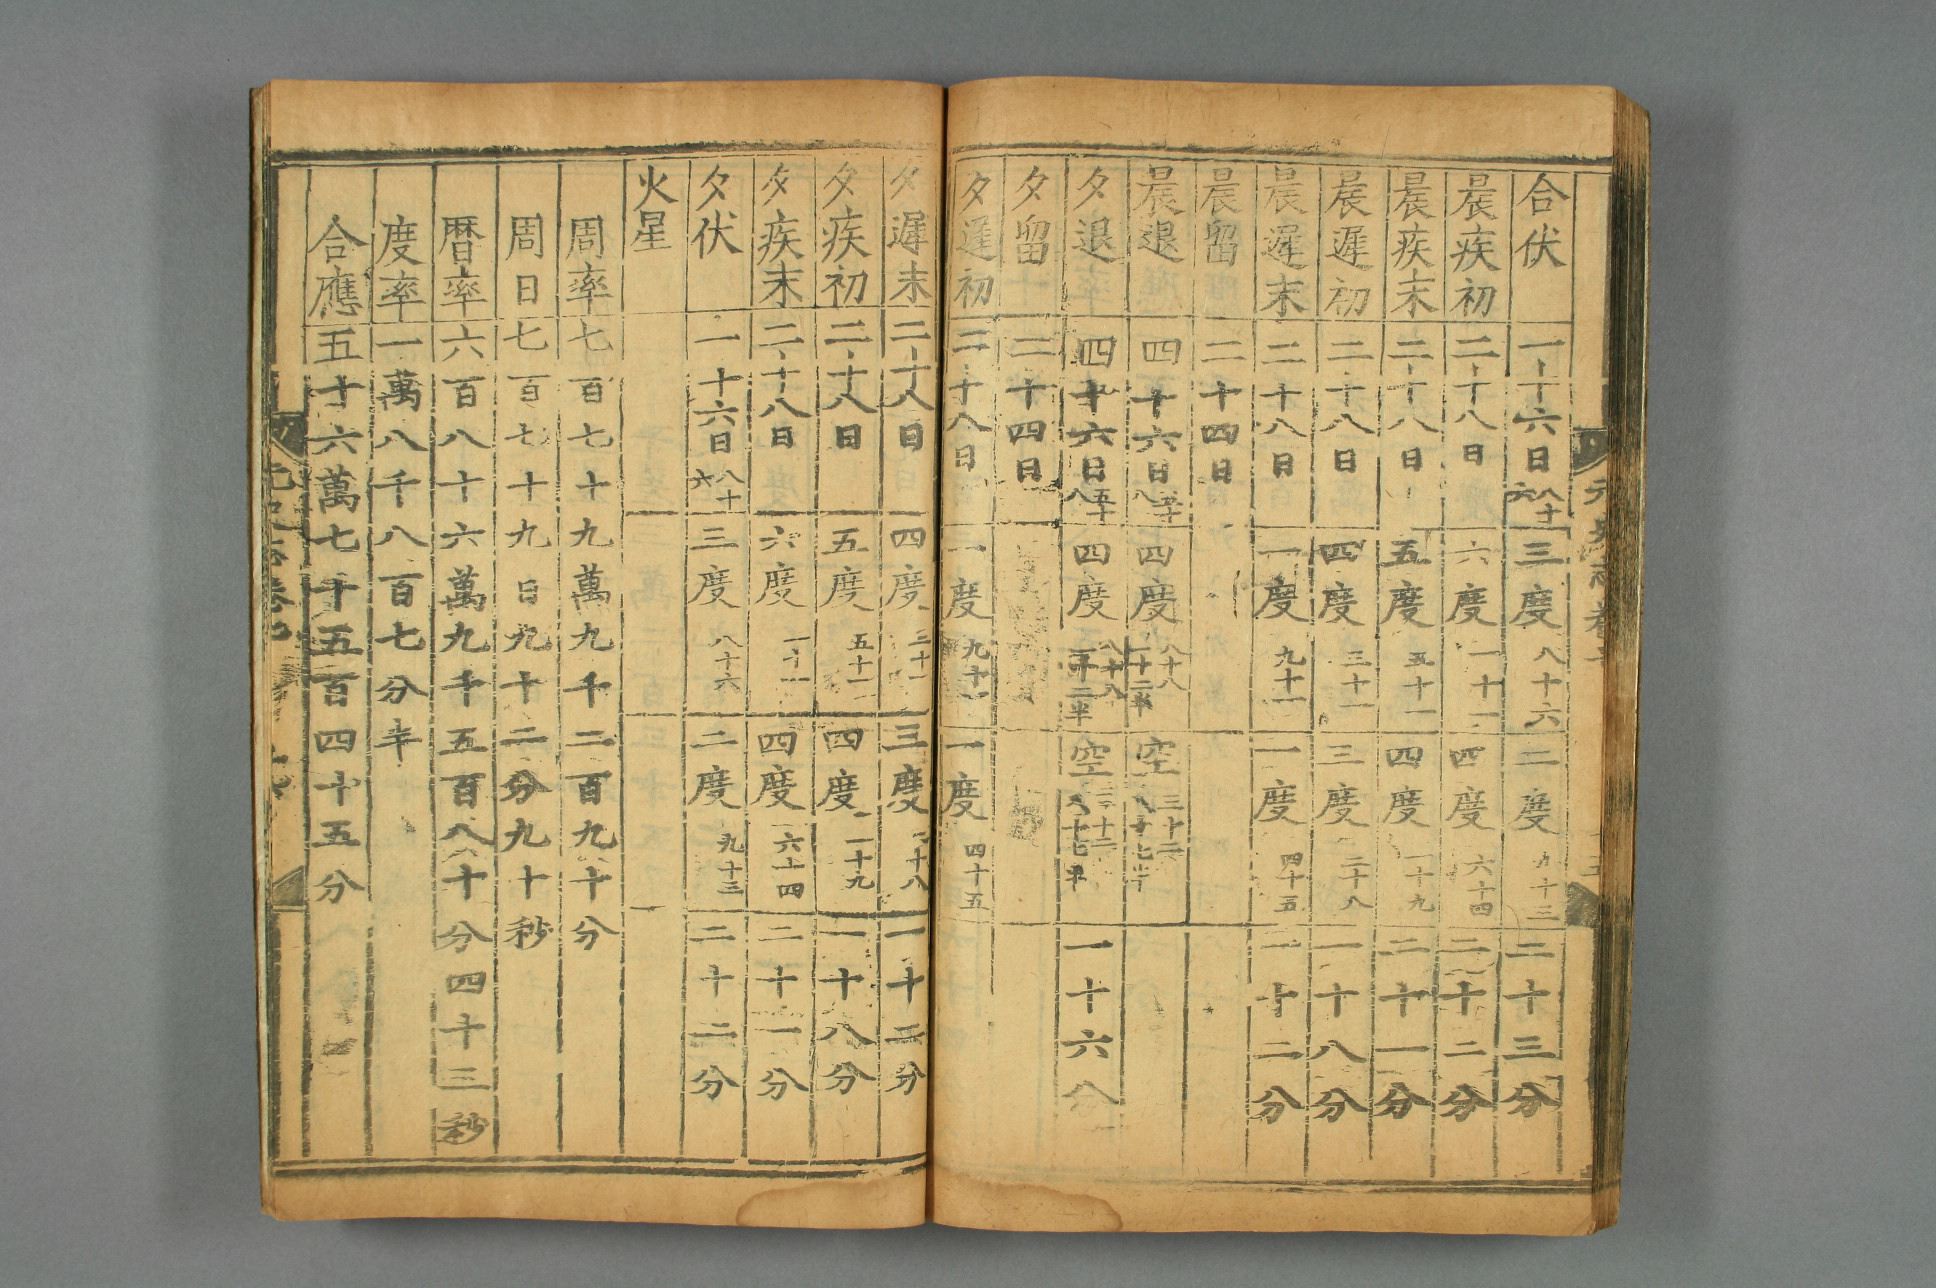 合伏 一十六日八十六 三度八十六 二度九十三 二十三分
晨疾初 二十八日 六度一十一 四度六十四 二十二分
晨疾末 二十八日 五度五十一 四度一十九 二十一分
晨遲初 二十八日 四度三十一 三度二十八 一十八分
晨遲末 二十八日 一度九十一 一度四十五 一十二分
晨留 二十四日
晨退 四十六日五十八 四度八十八一十二半 空三十二八十七半
夕退 四十六日五十八 四度八十八一十二半 空三十二八十七半 一十六分
夕留 二十四日
夕遲初 二十八日 一度九十一 一度四十五
夕遲末 二十八日 四度三十一 三度二十八 一十二分
夕疾初 二十八日 五度五十一 四度一十九 一十八分
夕疾末 二十八日 六度一十一 四度六十四 二十一分
夕伏 一十六日八十六 三度八十六 二度九十三 二十二分
火星
周率七百七十九萬九千二百九十分
周日七百七十九日九十二分九十秒
曆率六百八十六萬九千五百八十分四十三秒
度率一萬八千八百七分半
合應五十六萬七千五百四十五分